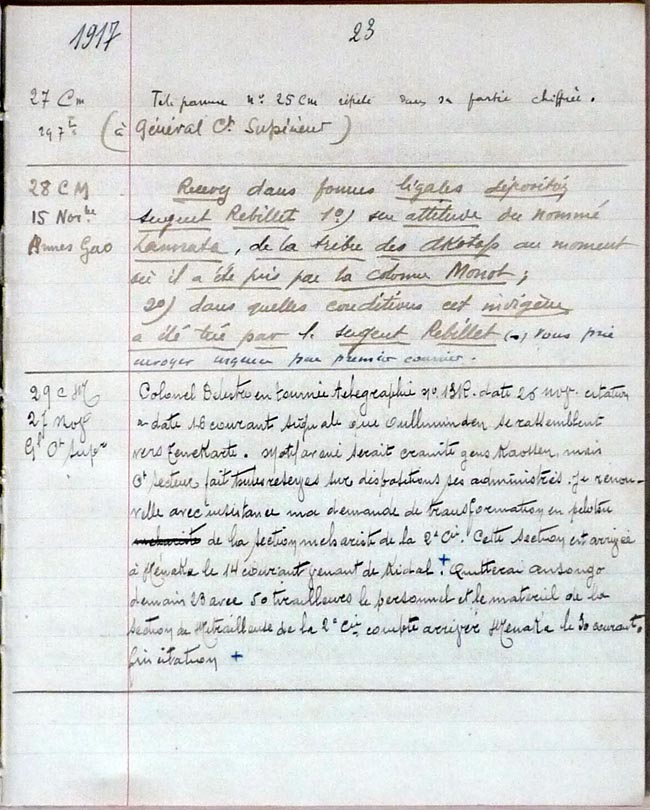 1917 23
27 Cm Télégramme n° 25 Cm répété dans sa partie chiffrée.
(à Général Ct Supérieur)
28 CM Recevez dans formes légales déposition
15 Novbre sergent Rebillet 1°) sur attitude du nommé
Gao , de la tribu des au moment
où il a été pris par la colonne Monot ;
2°) dans quelles conditions cet indigène
a été tué par le sergent Rebillet (.) Vous prie
envoyer urgence par premier courrier.
29 C M Colonel en tournée télégraphie n° date 26 nov. citation
27 Nov date 16 courant signale que Oulliminden se rassemblent
Gal Ct Supr vers . Motif avoué serait crainte gens Kaossen, mais
Ct secteur fait toutes réserves sur dispositions ses administrés. Je renou-
velle avec insistance ma demande de transformation en peloton
méhariste de la section méhariste de la 2e Cie. Cette section est arrivée
à Menaka le 14 courant venant de Kidal. + Quitterai Ansongo
demain 28 avec 50 tirailleurs le personnel et le matériel de la
section de Mitrailleuse de la 2e Cie compte arriver Menaka le 30 courant.
fin citation +